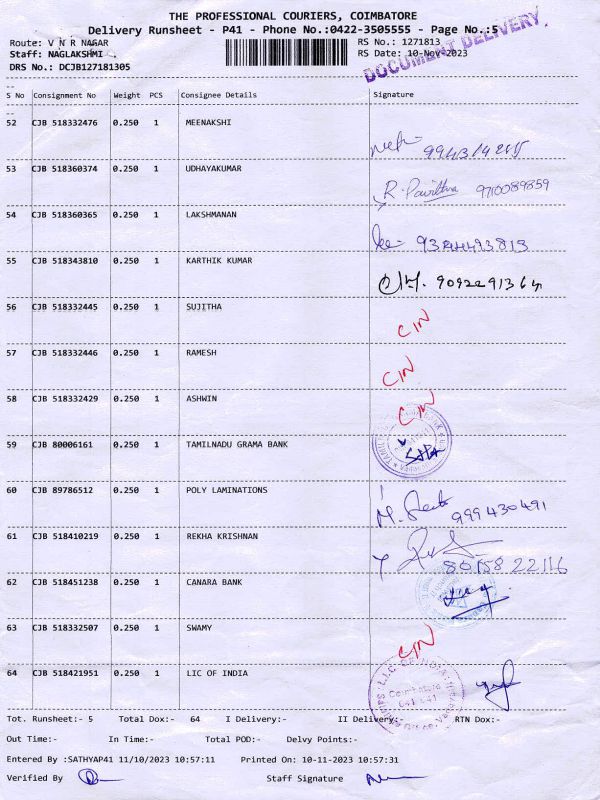 THE PROFESSIONAL COURIERS, COIMBATORE
Delivery Runsheet - P41 - Phone No.:0422-3505555 - Page No.:5
Route: V N R NAGAR RS No.: 1271813
Staff: NAGLAKSHMI RS Date: 10-Nov-2023
DRS No.: DCJB127181305
DOCUMENT DELIVERY
S No Consignment No Weight PCS Consignee Details Signature
52 CJB 518332476 0.250 1 MEENAKSHI
53 CJB 518360374 0.250 1 UDHAYAKUMAR
R. Pavithra 9710089859
54 CJB 518360365 0.250 1 LAKSHMANAN
55 CJB 518343810 0.250 1 KARTHIK KUMAR
56 CJB 518332445 0.250 1 SUJITHA
CIN
57 CJB 518332446 0.250 1 RAMESH
CIN
58 CJB 518332429 0.250 1 ASHWIN
CIN
59 CJB 80006161 0.250 1 TAMILNADU GRAMA BANK
60 CJB 89786512 0.250 1 POLY LAMINATIONS
999430491
61 CJB 518410219 0.250 1 REKHA KRISHNAN
8015822116
62 CJB 518451238 0.250 1 CANARA BANK
63 CJB 518332507 0.250 1 SWAMY
CIN
64 CJB 518421951 0.250 1 LIC OF INDIA
L.I.C. OF INDIA
Coimbatore
641 041
Tot. Runsheet:- 5 Total Dox:- 64 I Delivery:- II Delivery:- RTN Dox:-
Out Time:- In Time:- Total POD:- Delvy Points:-
Entered By :SATHYAP41 11/10/2023 10:57:11 Printed On: 10-11-2023 10:57:31
Verified By Staff Signature